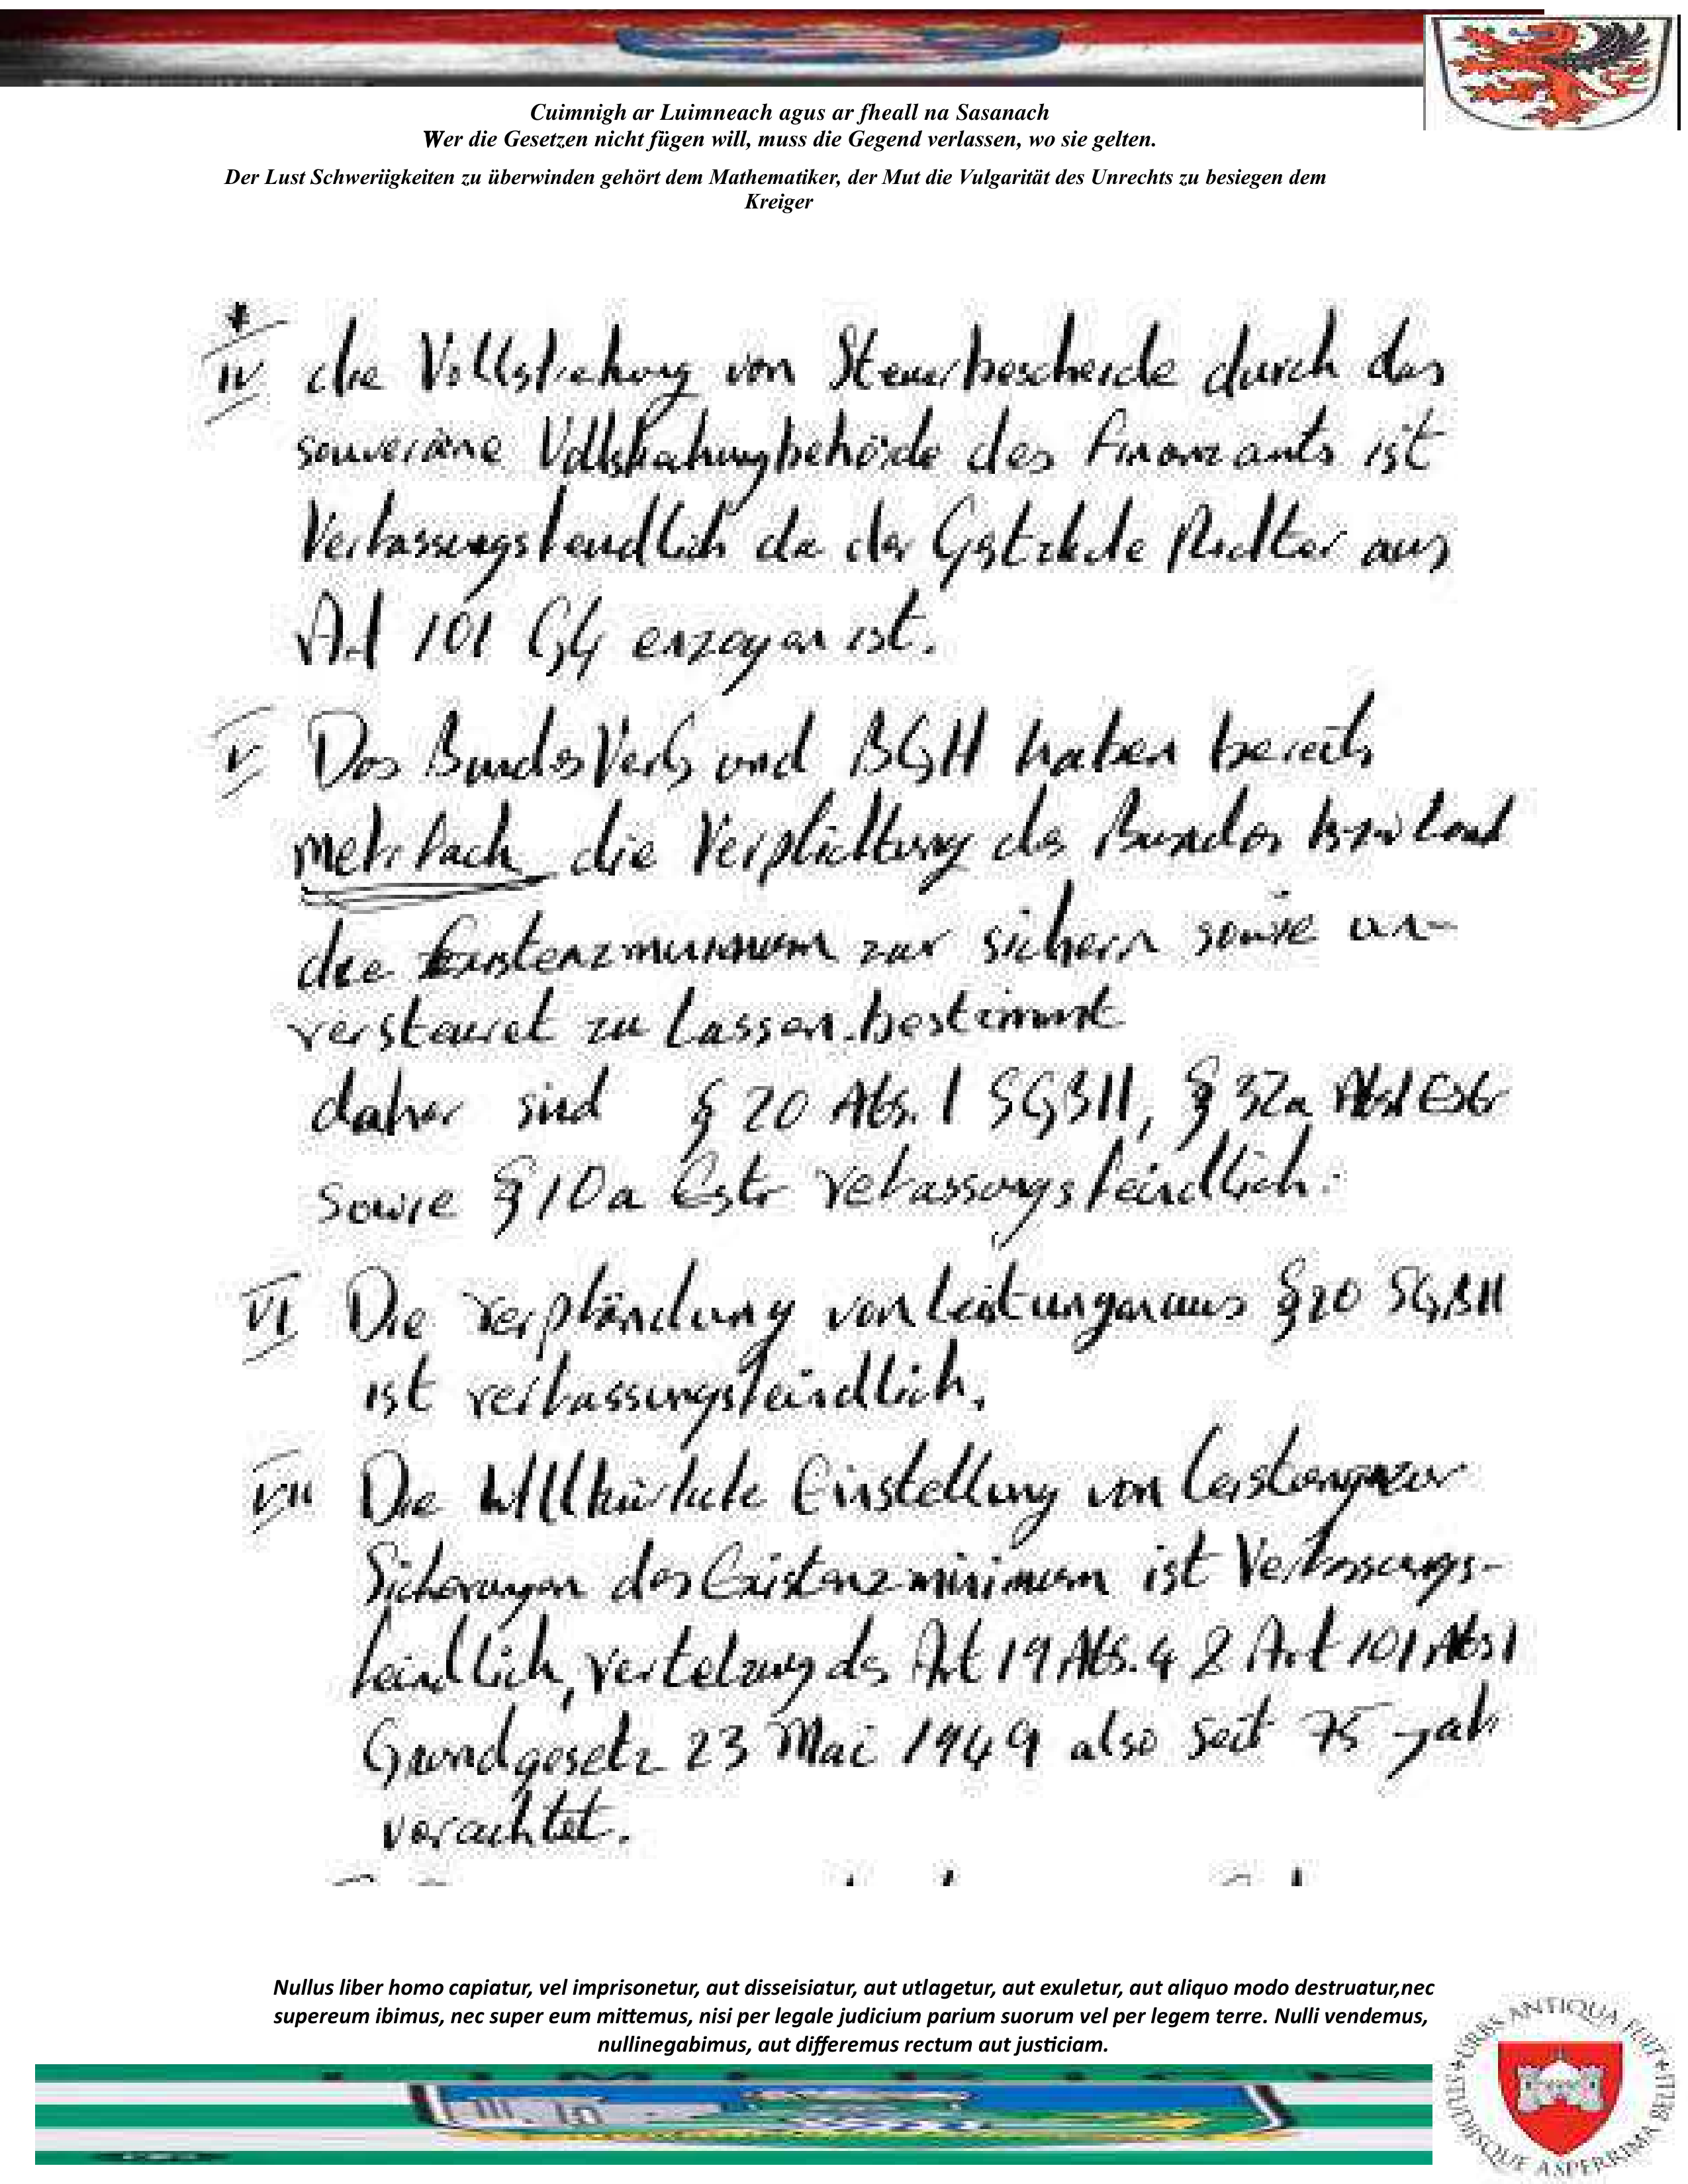 Cuimnigh ar Luimneach agus ar fheall na Sasanach
Wer die Gesetzen nicht fügen will, muss die Gegend verlassen, wo sie gelten.
Der Lust Schweriigkeiten zu überwinden gehört dem Mathematiker, der Mut die Vulgarität des Unrechts zu besiegen dem
Kreiger
IV die Vollstrehung von Steuerbescheide durch das
souveräne Vollstrahungbehörde des Finanzamts ist
Verfassungsfeindlich da der Gestzliche Richter aus
Art 101 GG enzogen ist.
V Das BundesVerfG und BGH haben bereits
mehrfach die Verplichtung des Bundes bzw Land
die Existenzminimum zur sichern sowie un-
versteuret zu lassen bestimmt
daher sind § 20 Abs. 1 SGBII, § 32a Abs1 EStG
sowie § 10a EStG verfassungsfeindlich.
VI Die verpfändung von Leistungen aus § 20 SGBII
ist verfassungsfeindlich.
VII Die Willkürliche Einstellung von Leistungen zur
Sicherungen des Existenzminimum ist Verfassungs-
feindlich, verletzung des Art 19 Abs. 4 & Art 101 Abs1
Grundgesetz 23 Mai 1949 also seit 75 Jah
verachtet.
Nullus liber homo capiatur, vel imprisonetur, aut disseisiatur, aut utlagetur, aut exuletur, aut aliquo modo destruatur,nec
supereum ibimus, nec super eum mittemus, nisi per legale judicium parium suorum vel per legem terre. Nulli vendemus,
nullinegabimus, aut differemus rectum aut justiciam.
URBS ANTIQUA FUIT STUDIISQUE ASPERRIMA BELLI